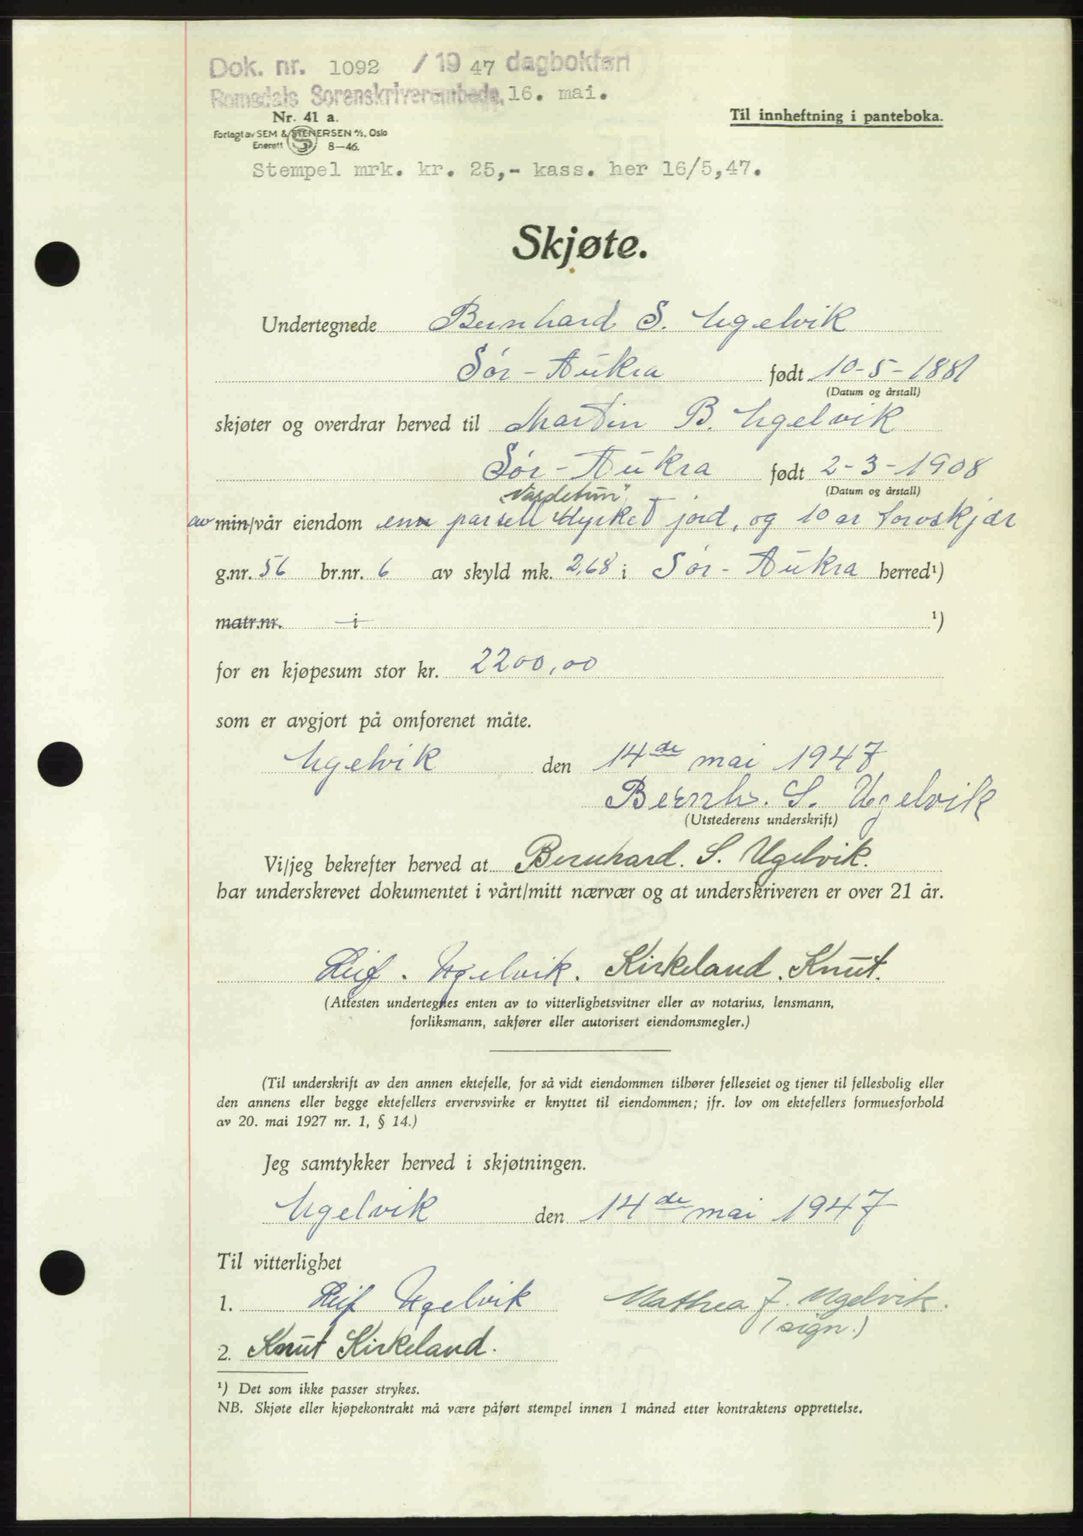 Dok. nr. 1092 / 19 47 dagbokført
Romsdals Sorenskriverembede, 16. mai.
Nr. 41 a.
Til innheftning i panteboka.
Forlagt av SEM & STENERSEN A/S, Oslo
Enerett 8—46.
Stempel mrk. kr. 25,- kass. her 16/5,47.
Skjøte.
Undertegnede Bernhard S. Ugelvik
Sør-Aukra født 10-5-1881
(Datum og årstall)
skjøter og overdrar herved til Martin B. Ugelvik
Sør-Aukra født 2-3-1908
(Datum og årstall)
"Vardetun"
av min/vår eiendom en parsell dyrket jord, og 10 ar torvskjær
g.nr. 56 br.nr. 6 av skyld mk. 2,68 i Sør-Aukra herred¹)
matr.nr. i ¹)
for en kjøpesum stor kr. 2200,00
som er avgjort på omforenet måte.
Ugelvik den 14de mai 1947
Bernh. S. Ugelvik
(Utstederens underskrift)
Vi/jeg bekrefter herved at Bernhard. S. Ugelvik.
har underskrevet dokumentet i vårt/mitt nærvær og at underskriveren er over 21 år.
Leif. Ugelvik. Kirkeland. Knut.
(Attesten undertegnes enten av to vitterlighetsvitner eller av notarius, lensmann,
forliksmann, sakfører eller autorisert eiendomsmegler.)
(Til underskrift av den annen ektefelle, for så vidt eiendommen tilhører felleseiet og tjener til fellesbolig eller
den annens eller begge ektefellers ervervsvirke er knyttet til eiendommen; jfr. lov om ektefellers formuesforhold
av 20. mai 1927 nr. 1, § 14.)
Jeg samtykker herved i skjøtningen.
Ugelvik den 14de mai 1947
Til vitterlighet
1. Leif Ugelvik Mathea J. Ugelvik.
(sign.)
2. Knut Kirkeland.
¹) Det som ikke passer strykes.
NB. Skjøte eller kjøpekontrakt må være påført stempel innen 1 måned etter kontraktens opprettelse.